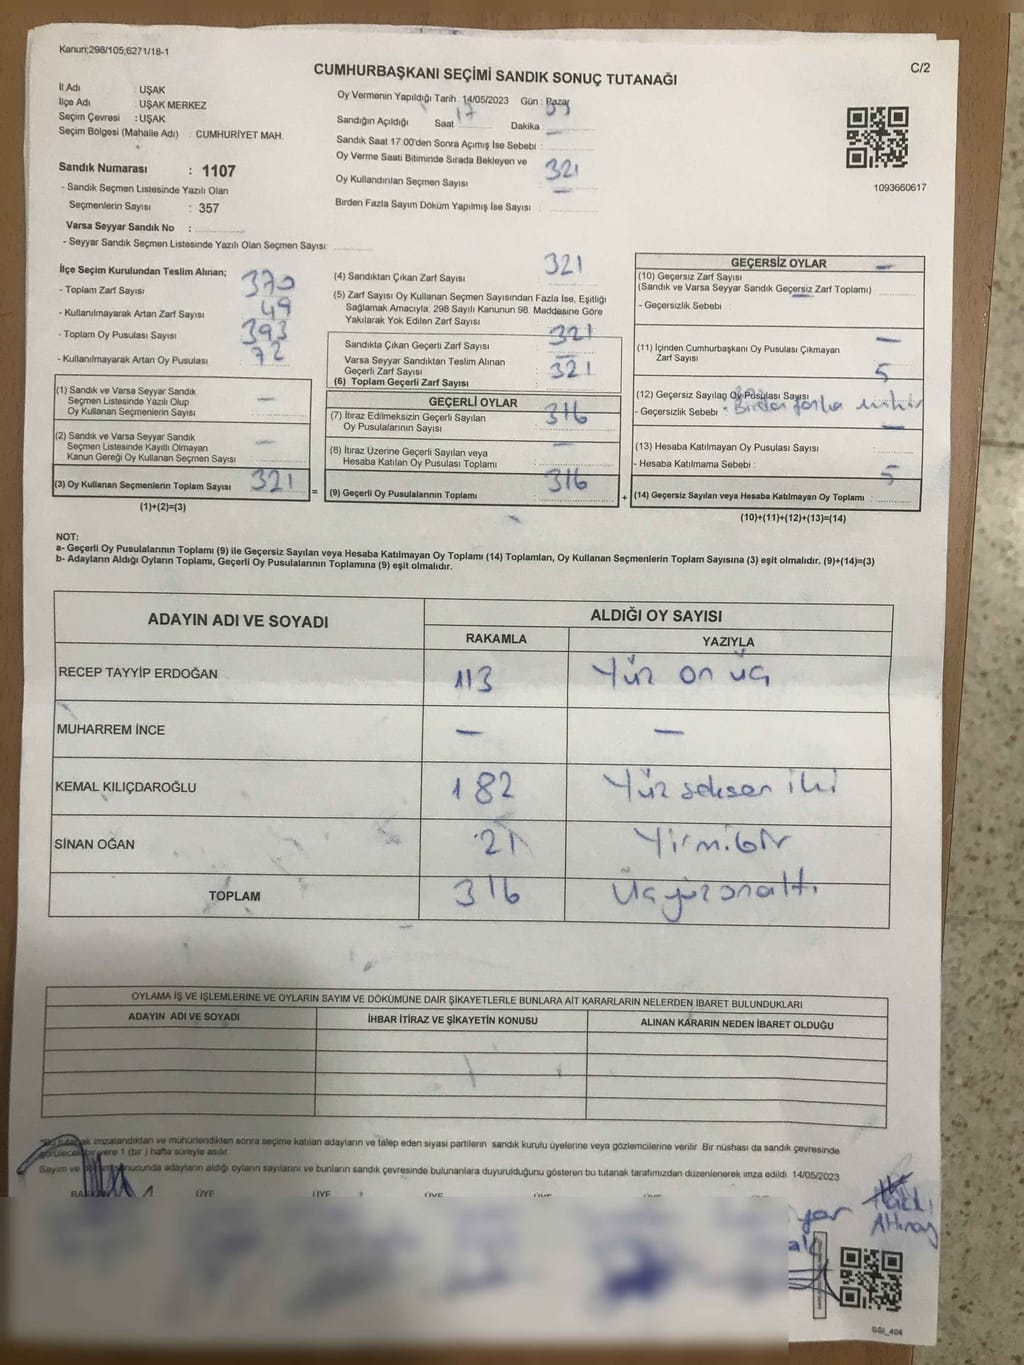 Kanun;298/105,6271/18-1
C/2
CUMHURBAŞKANI SEÇİMİ SANDIK SONUÇ TUTANAĞI
İl Adı : UŞAK
İlçe Adı : UŞAK MERKEZ
Seçim Çevresi : UŞAK
Seçim Bölgesi (Mahalle Adı) : CUMHURİYET MAH.
Sandık Numarası : 1107
- Sandık Seçmen Listesinde Yazılı Olan
Seçmenlerin Sayısı : 357
Varsa Seyyar Sandık No :
- Seyyar Sandık Seçmen Listesinde Yazılı Olan Seçmen Sayısı:
Oy Vermenin Yapıldığı Tarih : 14/05/2023 Gün : Pazar
Sandığın Açıldığı Saat : 17 Dakika :
Sandık Saat 17:00'den Sonra Açımış İse Sebebi :
Oy Verme Saati Bitiminde Sırada Bekleyen ve
Oy Kullandırılan Seçmen Sayısı : 321
Birden Fazla Sayım Döküm Yapılmış İse Sayısı : —
1093660617
İlçe Seçim Kurulundan Teslim Alınan;
- Toplam Zarf Sayısı : 370
- Kullanılmayarak Artan Zarf Sayısı : 49
- Toplam Oy Pusulası Sayısı : 393
- Kullanılmayarak Artan Oy Pusulası : 72
(1) Sandık ve Varsa Seyyar Sandık
Seçmen Listesinde Yazılı Olup
Oy Kullanan Seçmenlerin Sayısı : —
(2) Sandık ve Varsa Seyyar Sandık
Seçmen Listesinde Kayıtlı Olmayan
Kanun Gereği Oy Kullanan Seçmen Sayısı : —
(3) Oy Kullanan Seçmenlerin Toplam Sayısı : 321
(1)+(2)=(3)
=
(4) Sandıktan Çıkan Zarf Sayısı : 321
(5) Zarf Sayısı Oy Kullanan Seçmen Sayısından Fazla İse, Eşitliği
Sağlamak Amacıyla; 298 Sayılı Kanunun 98. Maddesine Göre
Yakılarak Yok Edilen Zarf Sayısı
Sandıkta Çıkan Geçerli Zarf Sayısı : 321
Varsa Seyyar Sandıktan Teslim Alınan
Geçerli Zarf Sayısı : —
(6) Toplam Geçerli Zarf Sayısı : 321
GEÇERLİ OYLAR
(7) İtiraz Edilmeksizin Geçerli Sayılan
Oy Pusulalarının Sayısı : 316
(8) İtiraz Üzerine Geçerli Sayılan veya
Hesaba Katılan Oy Pusulası Toplamı : —
(9) Geçerli Oy Pusulalarının Toplamı : 316
+
GEÇERSİZ OYLAR
(10) Geçersiz Zarf Sayısı
(Sandık ve Varsa Seyyar Sandık Geçersiz Zarf Toplamı) : —
- Geçersizlik Sebebi :
(11) İçinden Cumhurbaşkanı Oy Pusulası Çıkmayan
Zarf Sayısı : —
(12) Geçersiz Sayılan Oy Pusulası Sayısı : 5
- Geçersizlik Sebebi : Birden fazla mühür
(13) Hesaba Katılmayan Oy Pusulası Sayısı : —
- Hesaba Katılmama Sebebi :
(14) Geçersiz Sayılan veya Hesaba Katılmayan Oy Toplamı : 5
(10)+(11)+(12)+(13)=(14)
NOT:
a- Geçerli Oy Pusulalarının Toplamı (9) ile Geçersiz Sayılan veya Hesaba Katılmayan Oy Toplamı (14) Toplamları, Oy Kullanan Seçmenlerin Toplam Sayısına (3) eşit olmalıdır. (9)+(14)=(3)
b- Adayların Aldığı Oyların Toplamı, Geçerli Oy Pusulalarının Toplamına (9) eşit olmalıdır.
ADAYIN ADI VE SOYADI ALDIĞI OY SAYISI
RAKAMLA YAZIYLA
RECEP TAYYİP ERDOĞAN 113 Yüz on üç
MUHARREM İNCE — —
KEMAL KILIÇDAROĞLU 182 Yüz seksen iki
SİNAN OĞAN 21 Yirmi bir
TOPLAM 316 Üç yüz on altı
OYLAMA İŞ VE İŞLEMLERİNE VE OYLARIN SAYIM VE DÖKÜMÜNE DAİR ŞİKAYETLERLE BUNLARA AİT KARARLARIN NELERDEN İBARET BULUNDUKLARI
ADAYIN ADI VE SOYADI İHBAR İTİRAZ VE ŞİKAYETİN KONUSU ALINAN KARARIN NEDEN İBARET OLDUĞU
*Bu tutanak imzalandıktan ve mühürlendikten sonra seçime katılan adayların ve talep eden siyasi partilerin sandık kurulu üyelerine veya gözlemcilerine verilir. Bir nüshası da sandık çevresinde
görülecek bir yere 1 (bir ) hafta süreyle asılır.
Sayım ve sonucunda adayların aldığı oyların sayılarını ve bunların sandık çevresinde bulunanlara duyurulduğunu gösteren bu tutanak tarafımızdan düzenlenerek imza edildi. 14/05/2023
ÜYE ÜYE ÜYE ÜYE ÜYE
Altınay